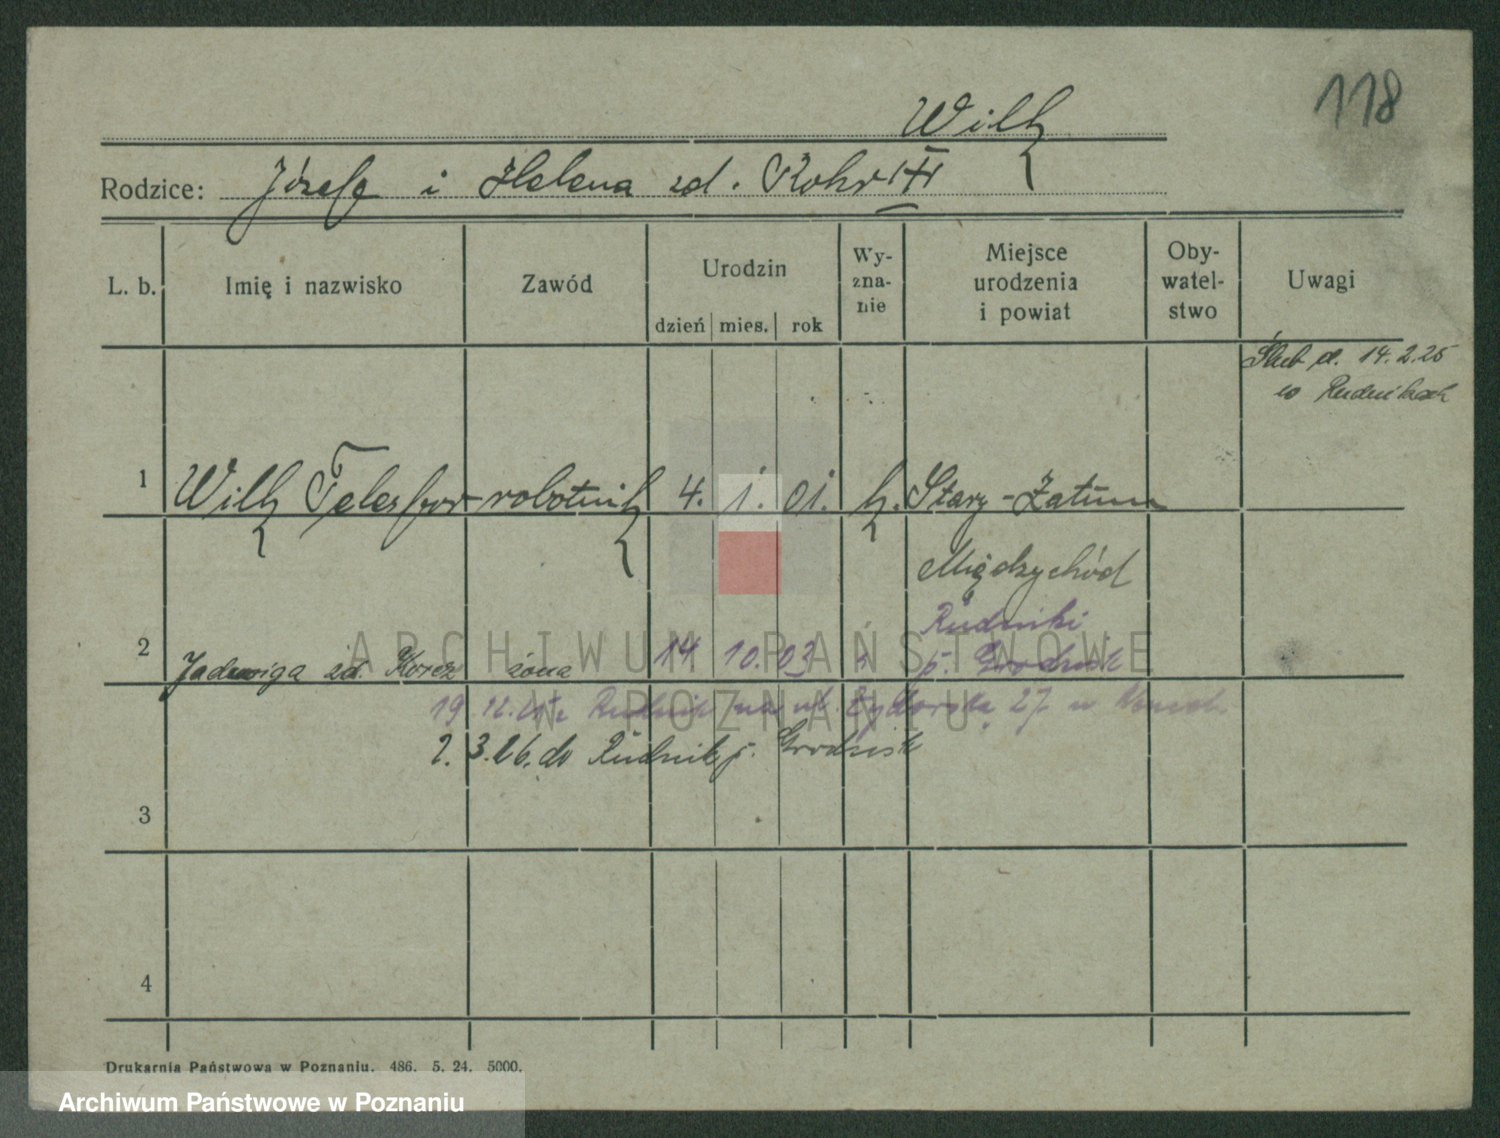 118
Wilk
Rodzice: Józefa i Helena zd.
L. b. Imię i nazwisko Zawód Urodzin dzień mies. rok Wy-zna-nie Miejsce urodzenia i powiat Oby-watel-stwo Uwagi
Ślub d. 14.2.25
w Rudnikach
1 Wilk Telesfor robotnik 4. 1. 01. k. Stary-Zatum
Międzychód
Rudniki
2 Jadwiga zd. Korcz żona 14 10. 03 k p. Grodzisk
ARCHIWUM PAŃSTWOWE
19. 12. Rudnik na ul. 27 w
W POZNANIU
2. 3. 26. do Rudnik p. Grodzisk
3
4
Drukarnia Państwowa w Poznaniu. 486. 5. 24. 5000.
Archiwum Państwowe w Poznaniu